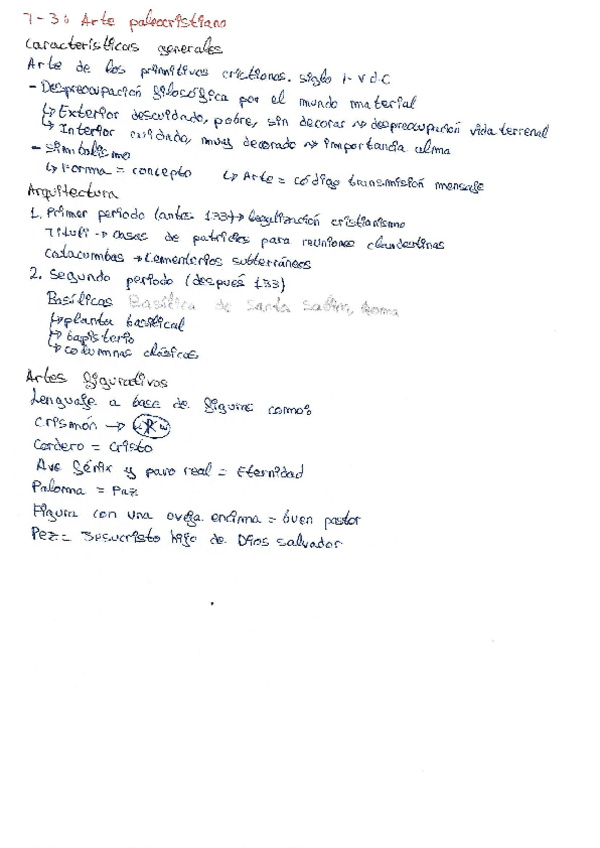 7-3: Arte paleocristiano
Características generales
Arte de los primitivos cristianos. siglo I-V d.C
- Despreocupación filosófica por el mundo material
↳ Exterior descuidado, pobre, sin decorar ⇝ despreocupación vida terrenal
↳ Interior cuidado, muy decorado ⇝ importancia alma
- Simbolismo
↳ Forma = concepto ↳ Arte = código transmisión mensaje
Arquitectura
1. Primer periodo (antes 133) → legalización cristianismo
Tituli → casas de patricios para reuniones clandestinas
Catacumbas → Cementerios subterráneos
2. Segundo periodo (después 133)
Basílicas Basílica de Santa Sabina, Roma
↳ planta basilical
↳ bapisterio
↳ columnas clásicas
Artes figurativas
Lenguaje a base de figuras como:
Crismón →
Cordero = Cristo
Ave fénix y pavo real = Eternidad
Paloma = Paz
Figura con una oveja encima = buen pastor
Pez = Jesucristo hijo de Dios salvador